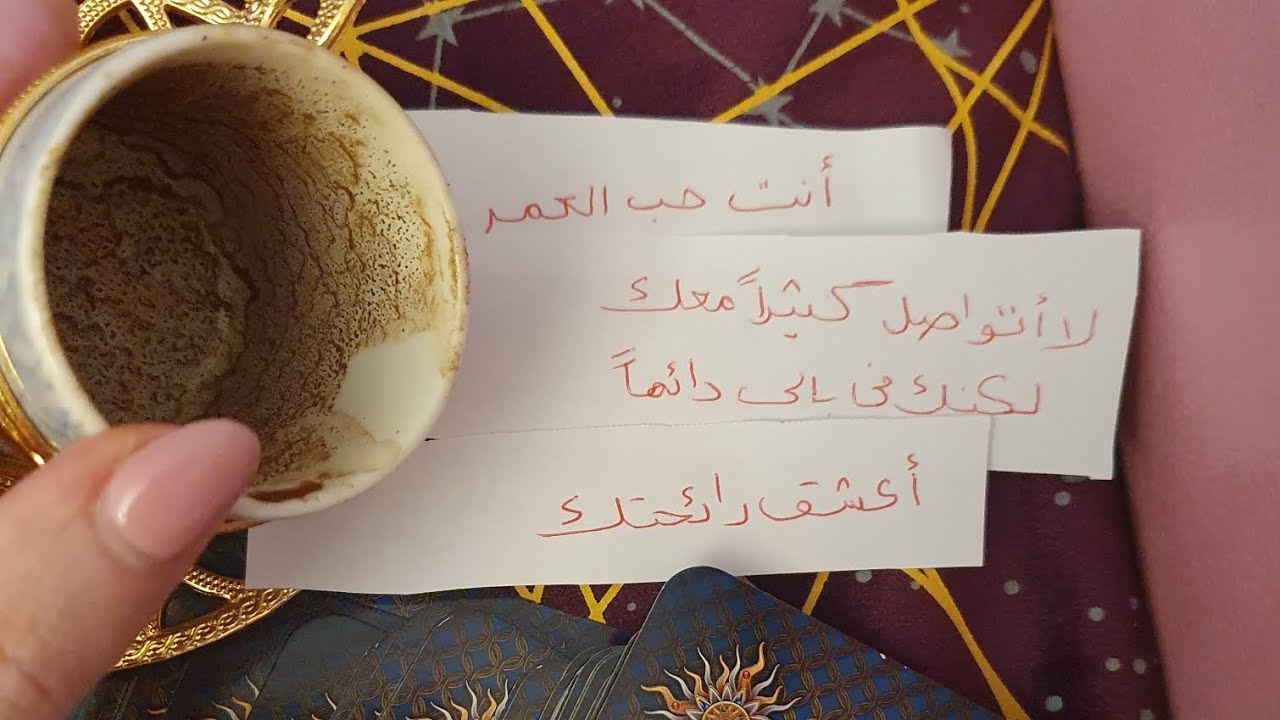 أنت حب العمر
لا أتواصل كثيراً معك
لكنك في بالي دائماً
أعشق رائحتك